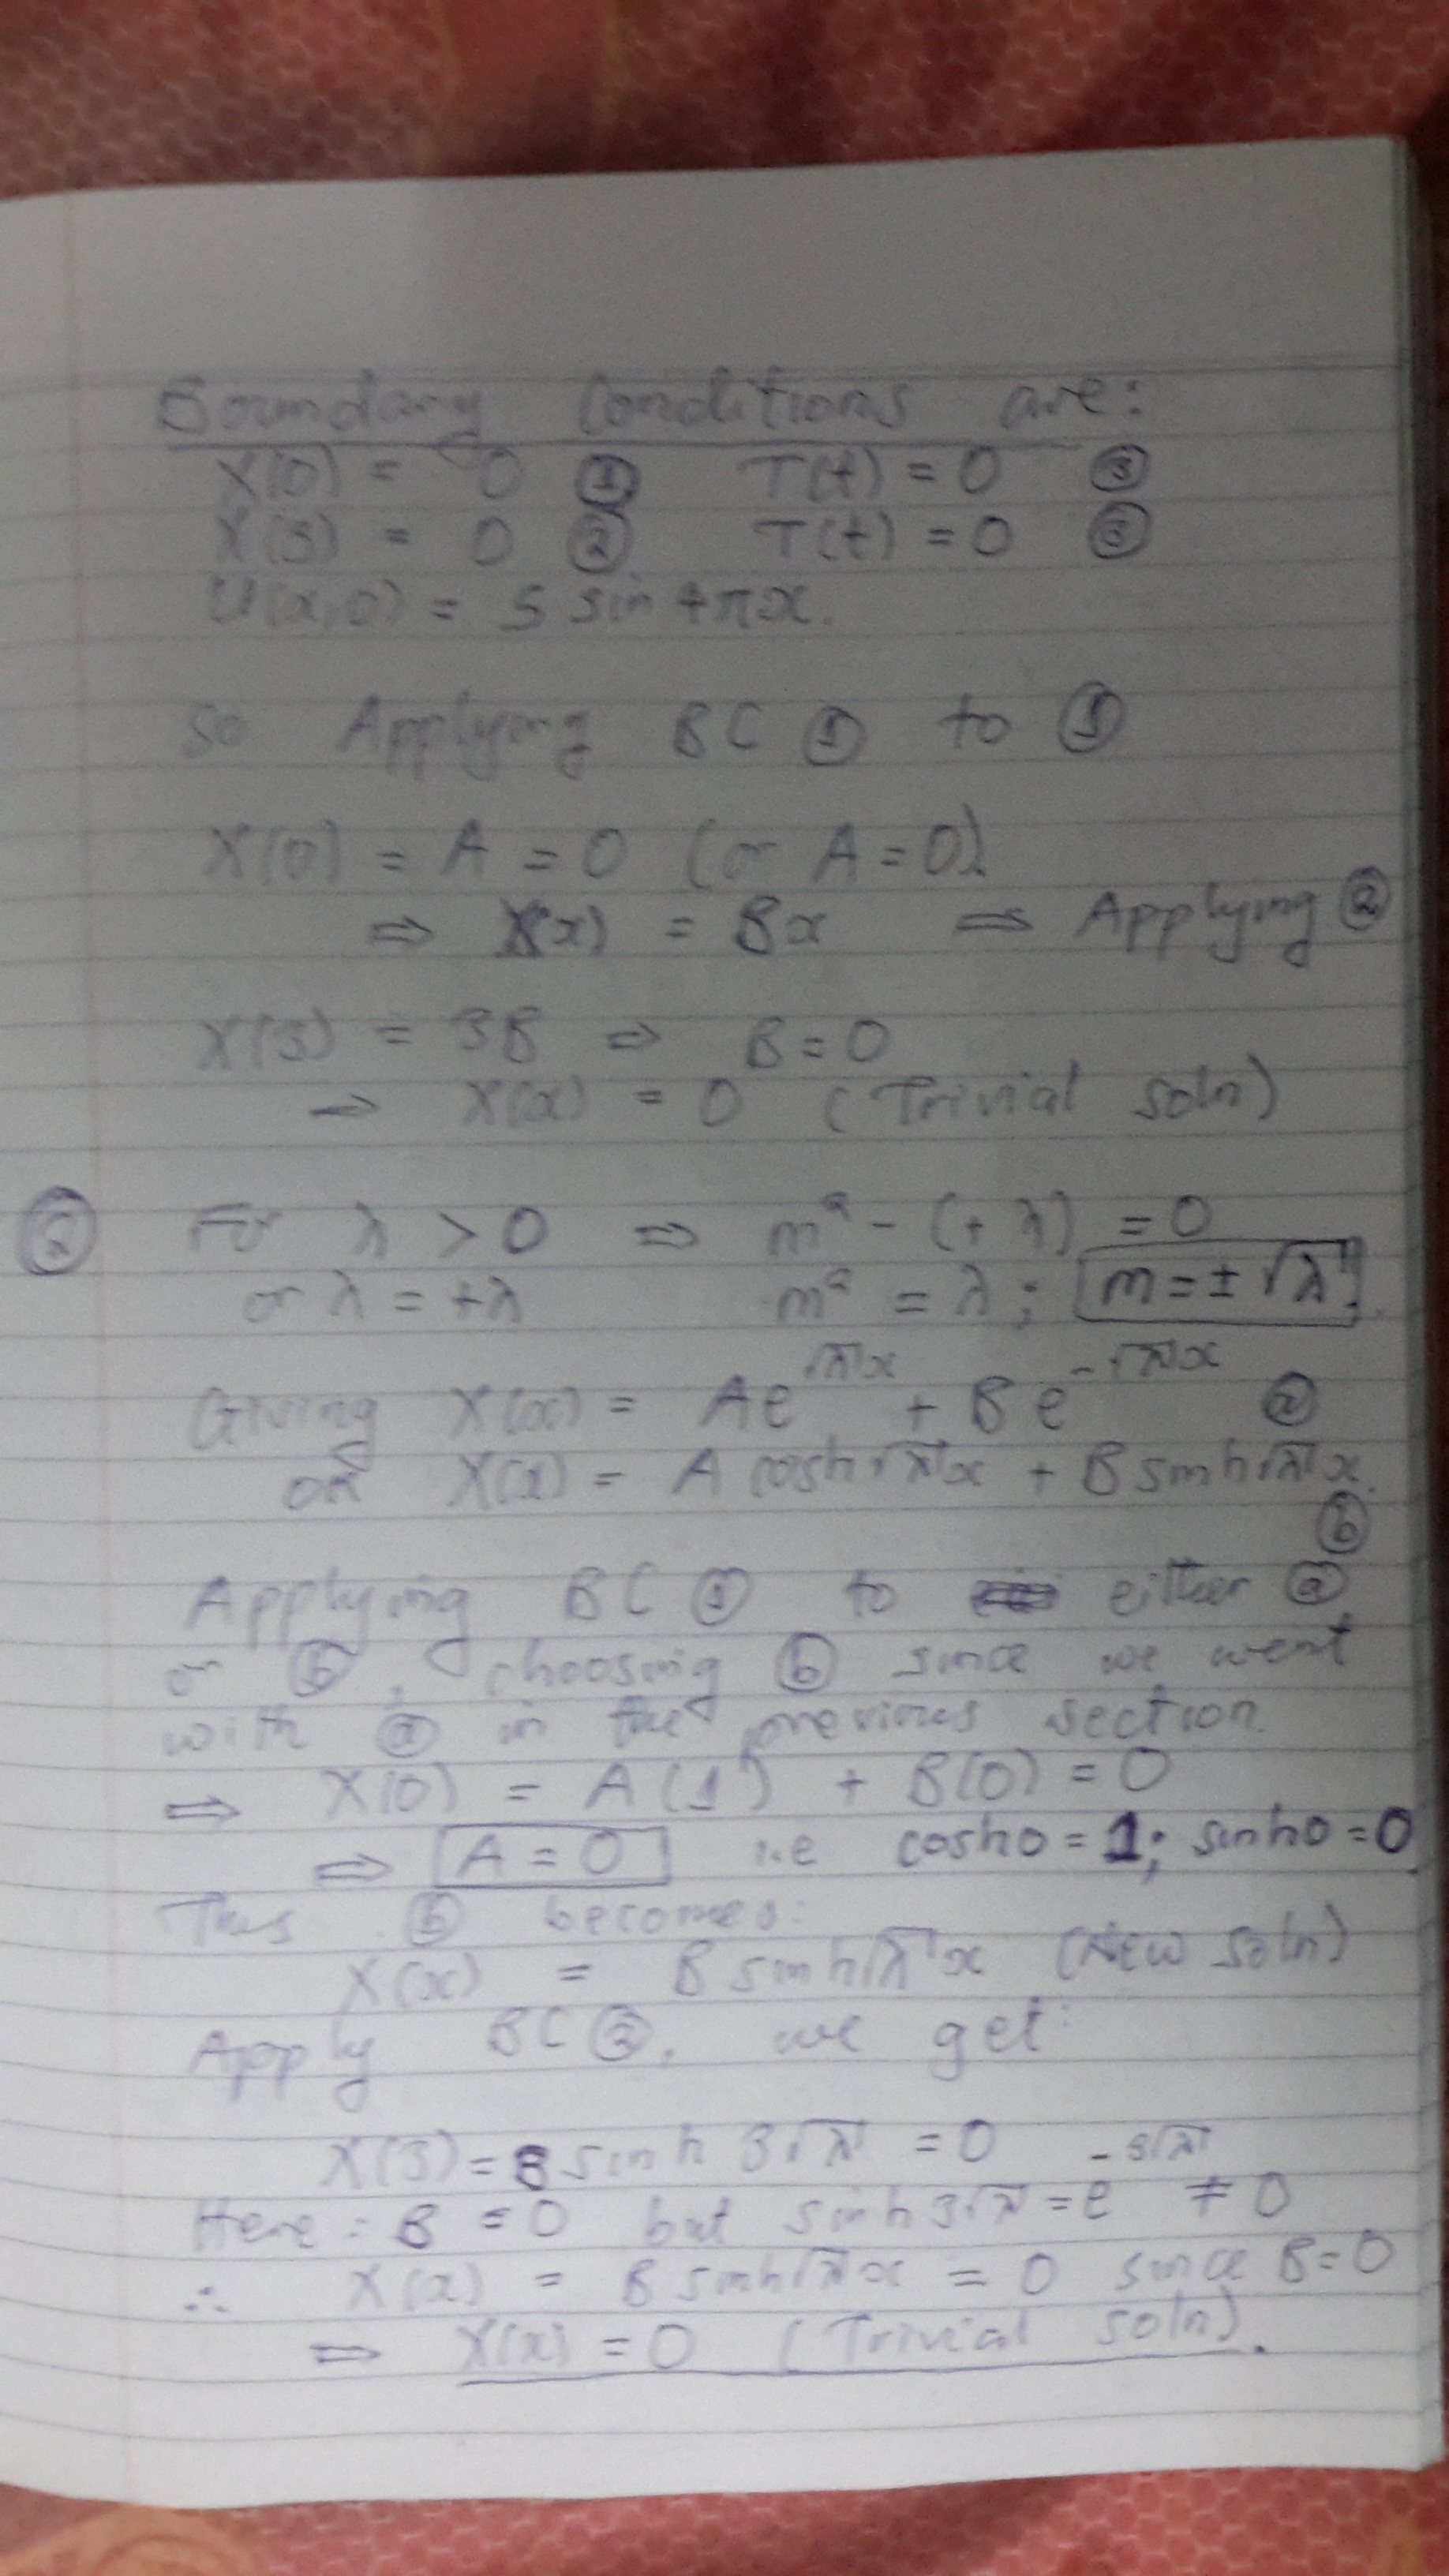 Boundary Conditions are:
X(0) = 0 ① T(t) = 0 ③
X(3) = 0 ② T(t) = 0 ③
U(x,0) = 5 sin 4πx.
So Applying BC ① to ①
X(0) = A = 0 (or A = 0)
⇒ X(x) = Bx ⇒ Applying ②
X(3) = 3B ⇒ B = 0
⇒ X(x) = 0 (Trivial soln)
② For λ > 0 ⇒ m² - (+λ) = 0
or λ = +λ m² = λ; m = ± √λ.
Giving X(x) = Ae^{√λx} + Be^{-√λx} ⓐ
or X(x) = A cosh√λx + B sinh√λx.
ⓑ
Applying BC ① to either ⓐ
or ⓑ, choosing ⓑ since we went
with ⓐ in the previous section.
⇒ X(0) = A(1) + B(0) = 0
⇒ A = 0 i.e cosh0 = 1; sinh0 = 0.
Thus ⓑ becomes:
X(x) = B sinh√λx (New soln)
Apply BC ②, we get:
X(3) = B sinh 3√λ = 0
Here: B = 0 but sinh3√λ = e^{-3√λ} ≠ 0
∴ X(x) = B sinh√λx = 0 since B = 0
⇒ X(x) = 0 (Trivial soln).